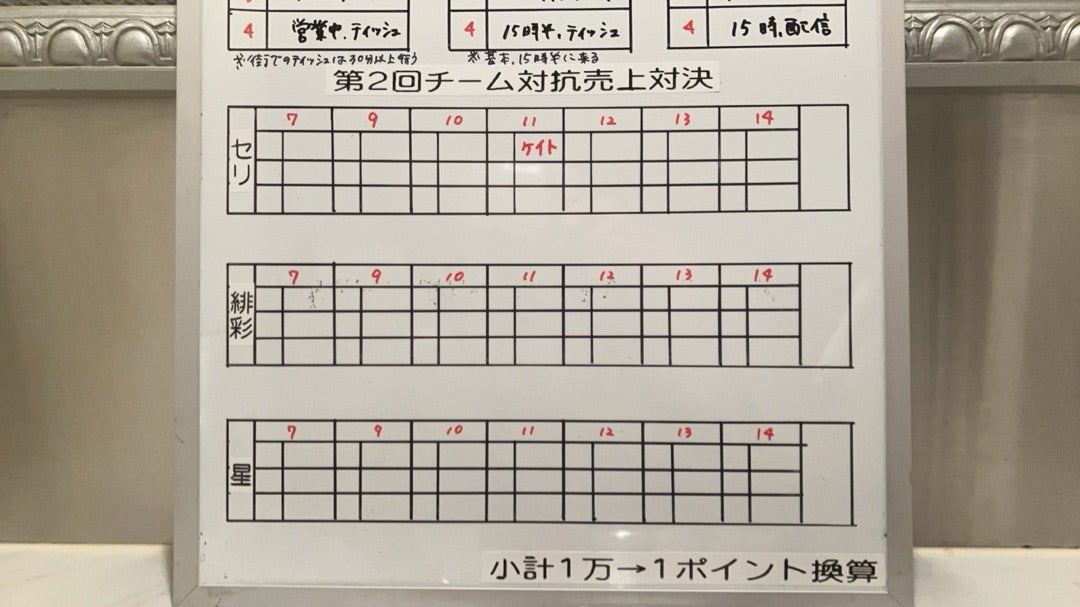 4 営業中、ティッシュ 4 15時半、ティッシュ 4 15時、配信
※街でのティッシュは30分以上行う ※基本、15時半に来る
第2回チーム対抗売上対決
セリ 7 9 10 11 12 13 14
ケイト
緋彩 7 9 10 11 12 13 14
星 7 9 10 11 12 13 14
小計1万→1ポイント換算